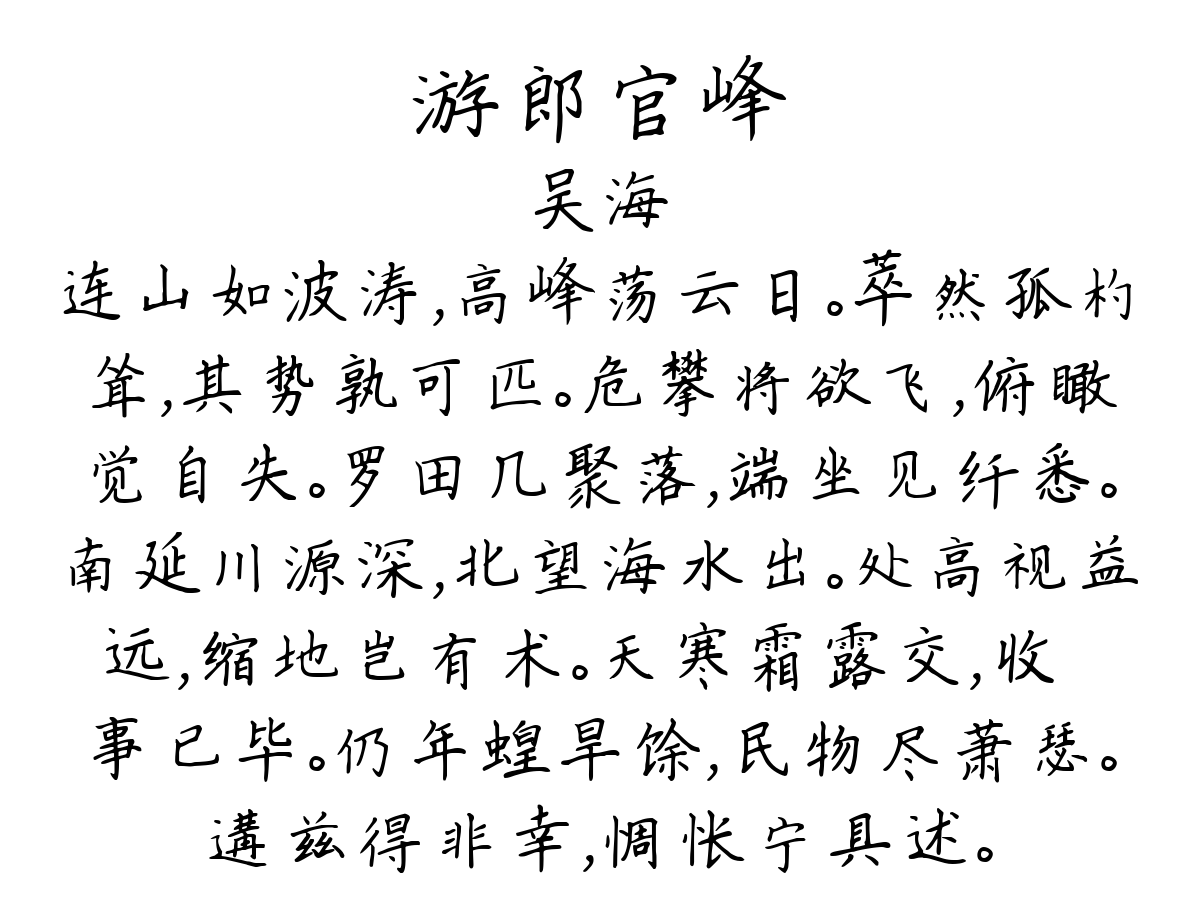 游郎官峰
吴海
连山如波涛,高峰荡云日。萃然孤杓
耸,其势孰可匹。危攀将欲飞,俯瞰
觉自失。罗田几聚落,端坐见纤悉。
南延川源深,北望海水出。处高视益
远,缩地岂有术。天寒霜露交,收
事已毕。仍年蝗旱馀,民物尽萧瑟。
遘兹得非幸,惆怅宁具述。